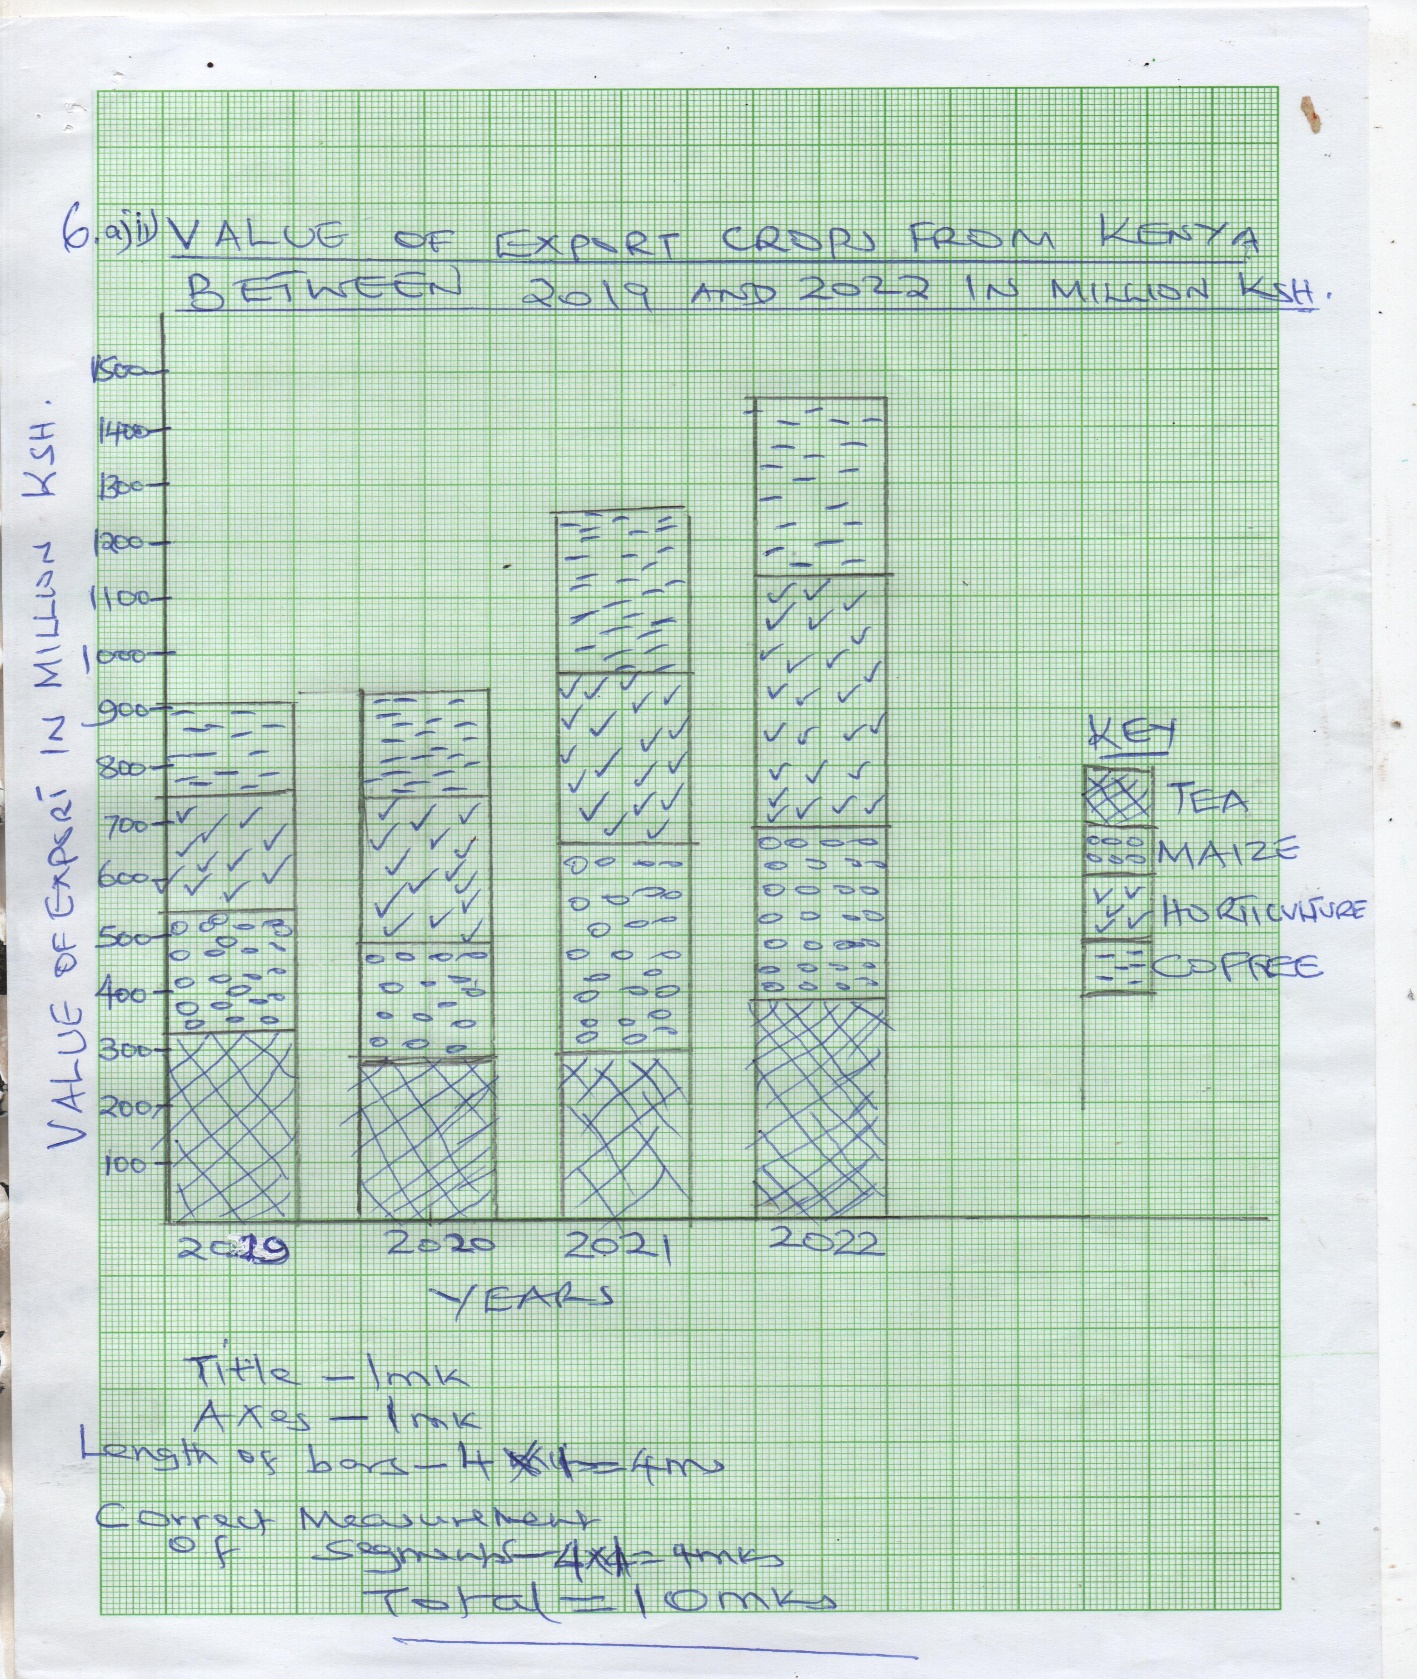 6.a)ii) VALUE OF EXPORT CROPS FROM KENYA
BETWEEN 2019 AND 2022 IN MILLION KSH.
VALUE OF EXPORT IN MILLION KSH.
1500
1400
1300
1200
1100
1000
900
800
700
600
500
400
300
200
100
2019 2020 2021 2022
YEARS
KEY
TEA
MAIZE
HORTICULTURE
COFFEE
Title - 1mk
Axes - 1mk
Length of bars - 4 x 1 = 4m
Correct Measurement
Of segments - 4x1 = 4mks
Total = 10mks